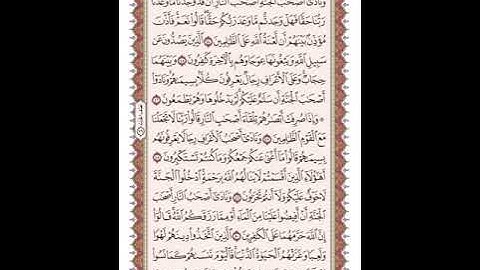 وَنَادَىٰٓ أَصْحَٰبُ ٱلْجَنَّةِ أَصْحَٰبَ ٱلنَّارِ أَن قَدْ وَجَدْنَا مَا وَعَدَنَا
رَبُّنَا حَقًّا فَهَلْ وَجَدتُّم مَّا وَعَدَ رَبُّكُمْ حَقًّا قَالُوا۟ نَعَمْ فَأَذَّنَ
مُؤَذِّنٌۢ بَيْنَهُمْ أَن لَّعْنَةُ ٱللَّهِ عَلَى ٱلظَّٰلِمِينَ ٱلَّذِينَ يَصُدُّونَ عَن
سَبِيلِ ٱللَّهِ وَيَبْغُونَهَا عِوَجًا وَهُم بِٱلْءَاخِرَةِ كَٰفِرُونَ وَبَيْنَهُمَا
حِجَابٌ وَعَلَى ٱلْأَعْرَافِ رِجَالٌ يَعْرِفُونَ كُلًّۢا بِسِيمَىٰهُمْ وَنَادَوْا۟
أَصْحَٰبَ ٱلْجَنَّةِ أَن سَلَٰمٌ عَلَيْكُمْ لَمْ يَدْخُلُوهَا وَهُمْ يَطْمَعُونَ
۞ وَإِذَا صُرِفَتْ أَبْصَٰرُهُمْ تِلْقَآءَ أَصْحَٰبِ ٱلنَّارِ قَالُوا۟ رَبَّنَا لَا تَجْعَلْنَا
مَعَ ٱلْقَوْمِ ٱلظَّٰلِمِينَ وَنَادَىٰٓ أَصْحَٰبُ ٱلْأَعْرَافِ رِجَالًا يَعْرِفُونَهُم
بِسِيمَىٰهُمْ قَالُوا۟ مَآ أَغْنَىٰ عَنكُمْ جَمْعُكُمْ وَمَا كُنتُمْ تَسْتَكْبِرُونَ
أَهَٰٓؤُلَآءِ ٱلَّذِينَ أَقْسَمْتُمْ لَا يَنَالُهُمُ ٱللَّهُ بِرَحْمَةٍ ٱدْخُلُوا۟ ٱلْجَنَّةَ
لَا خَوْفٌ عَلَيْكُمْ وَلَآ أَنتُمْ تَحْزَنُونَ وَنَادَىٰٓ أَصْحَٰبُ ٱلنَّارِ أَصْحَٰبَ
ٱلْجَنَّةِ أَنْ أَفِيضُوا۟ عَلَيْنَا مِنَ ٱلْمَآءِ أَوْ مِمَّا رَزَقَكُمُ ٱللَّهُ قَالُوٓا۟
إِنَّ ٱللَّهَ حَرَّمَهُمَا عَلَى ٱلْكَٰفِرِينَ ٱلَّذِينَ ٱتَّخَذُوا۟ دِينَهُمْ لَهْوًا
وَلَعِبًا وَغَرَّتْهُمُ ٱلْحَيَوٰةُ ٱلدُّنْيَا فَٱلْيَوْمَ نَنسَىٰهُمْ كَمَا نَسُوا۟